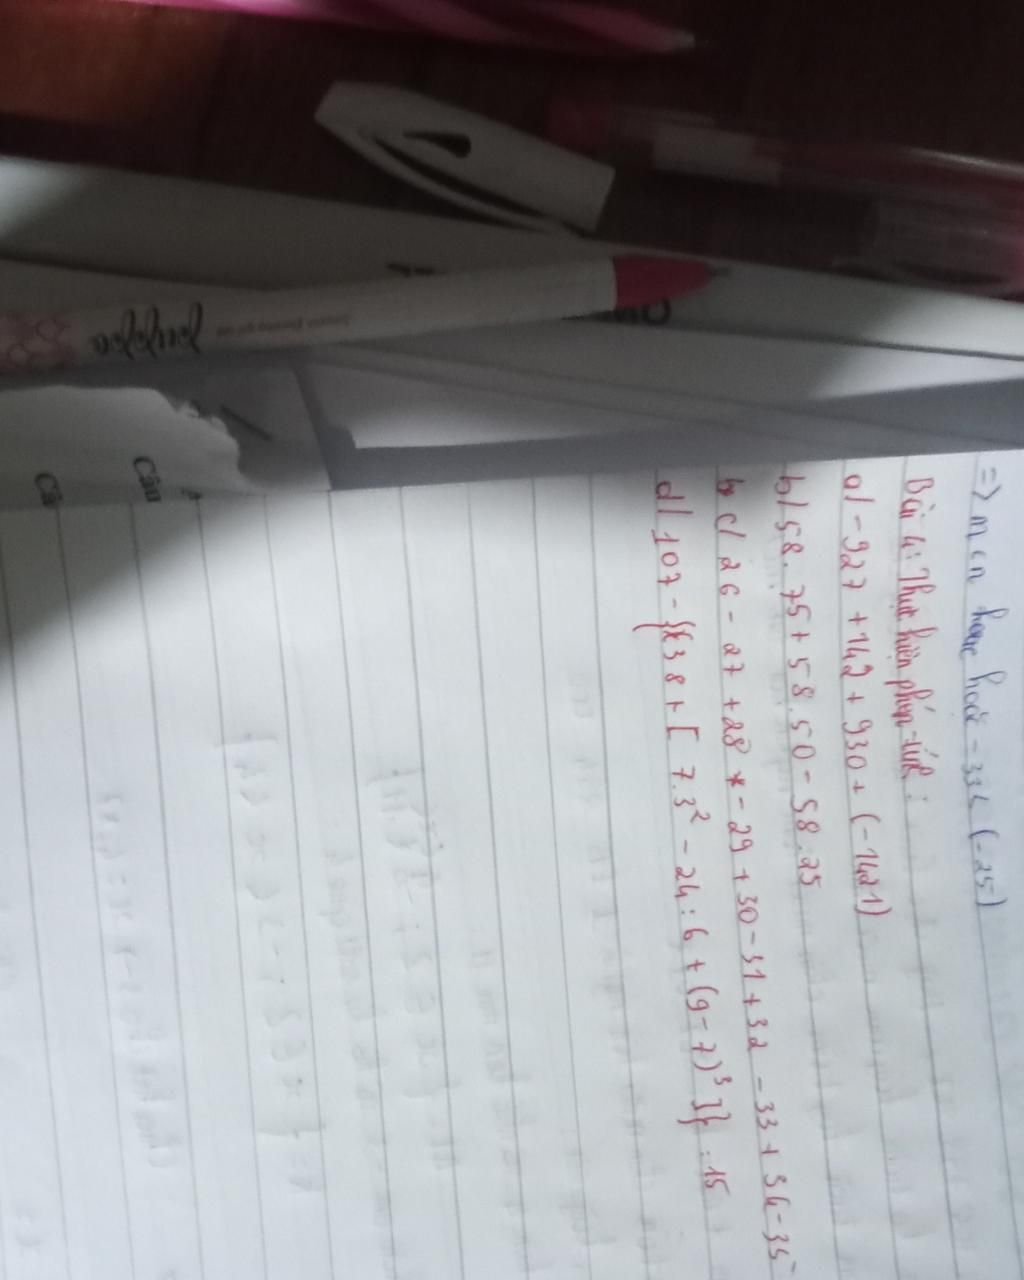 => m < n hoặc hoặc -33 < (-25)
Bài 4: Thực hiện phép tính:
a/ -927 + 142 + 930 + (-1421)
b/ 58.75 + 58.50 - 58.25
c/ 26 - 27 + 28 - 29 + 30 - 31 + 32 - 33 + 34 - 35
d/ 107 - {38 + [ 7.3² - 24:6 + (9-7)³ ]} : 15
Câu
Câ